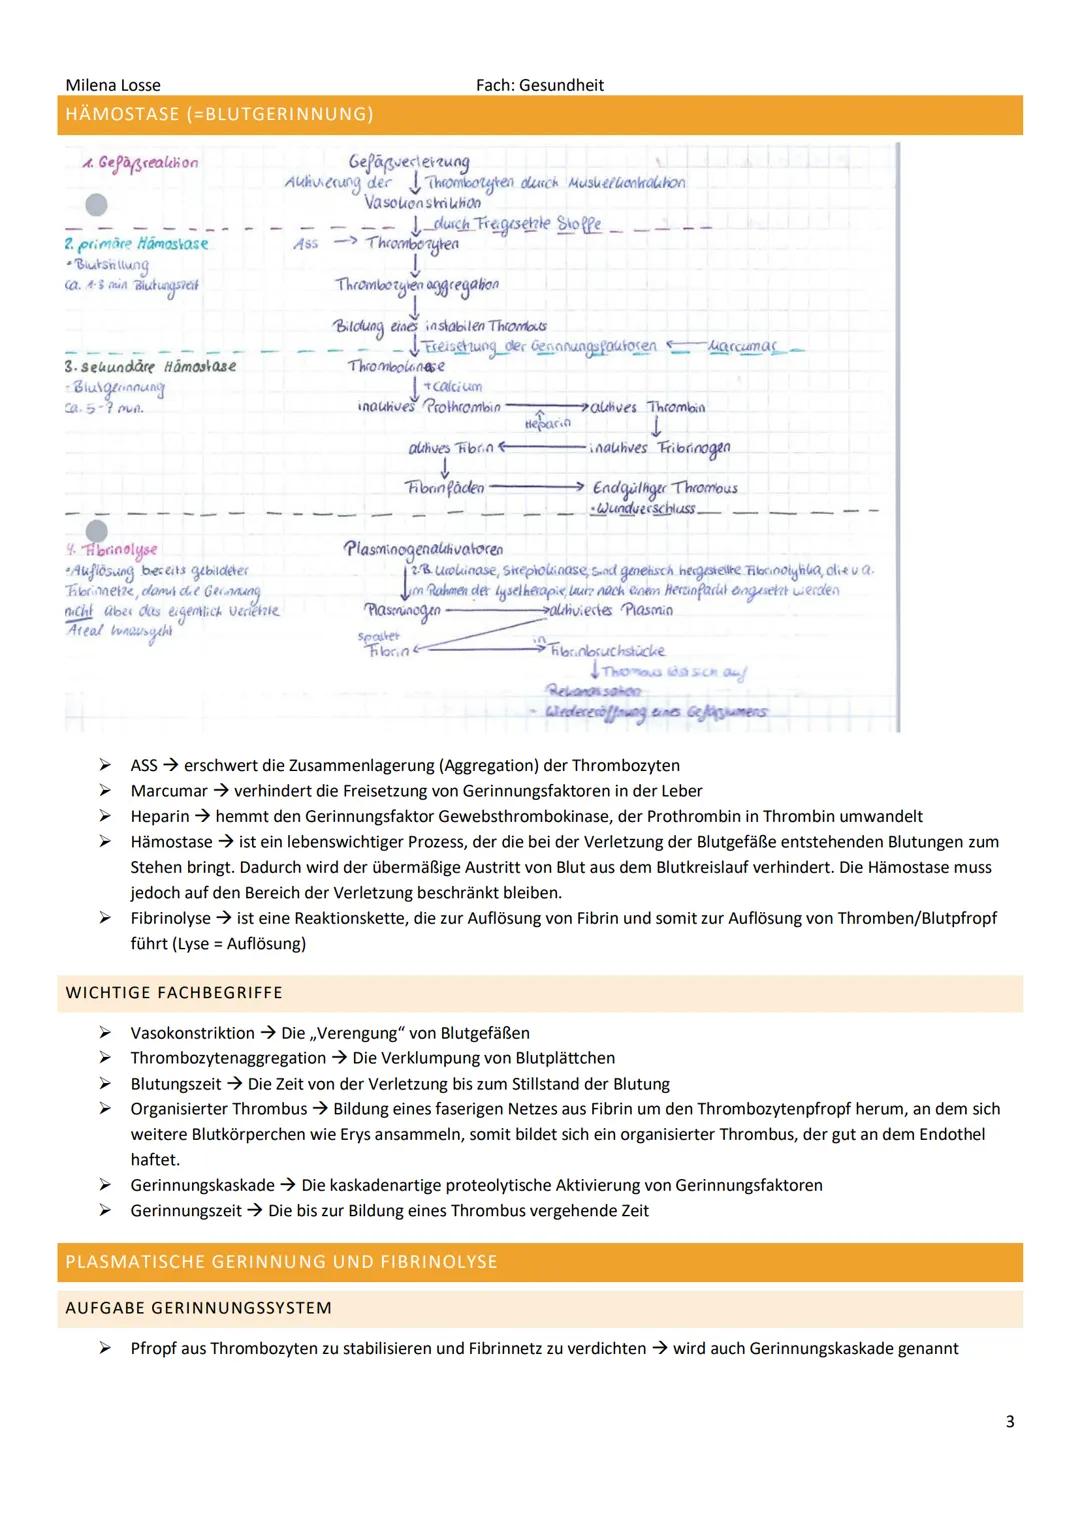 Milena Losse Fach: Gesundheit
HÄMOSTASE (=BLUTGERINNUNG)
1. Gefäßreaktion
Gefäßverletzung
Aktivierung der ↓ Thrombozyten durch Muskelkontraktion
Vasokonstriktion
↓ durch Freigesetzte Stoffe
2. primäre Hämostase
Ass → Thrombozyten
• Blutstillung
ca. 1-3 min Blutungszeit
↓
Thrombozytenaggregation
↓
Bildung eines instabilen Thrombus
↓ Freisetzung der Gerinnungsfaktoren ← Marcumar
3. sekundäre Hämostase
Thrombokinase
- Blutgerinnung
ca. 5-7 min.
↓ + calcium
inaktives Prothrombin → aktives Thrombin
↑ Heparin
↓
aktives Fibrin ← inaktives Fribrinogen
↓
Fibrinfäden → Endgültiger Thrombus
• Wundverschluss
4. Fibrinolyse
Plasminogenaktivatoren
• Auflösung bereits gebildeter
Fibrinnetze, damit die Gerinnung
nicht über das eigentlich verletzte
Areal hinausgeht
↓ z.B. Urokinase, Streptokinase, sind genetisch hergestellte Fibrinolytika, die u.a.
im Rahmen der Lysetherapie kurz nach einem Herzinfarkt eingesetzt werden
Plasminogen → aktiviertes Plasmin
spaltet
Fibrin in → Fibrinbruchstücke
↓ Thrombus löst sich auf
- Wiedereröffnung eines Gefäßlumens
➢ ASS → erschwert die Zusammenlagerung (Aggregation) der Thrombozyten
➢ Marcumar → verhindert die Freisetzung von Gerinnungsfaktoren in der Leber
➢ Heparin → hemmt den Gerinnungsfaktor Gewebsthrombokinase, der Prothrombin in Thrombin umwandelt
➢ Hämostase → ist ein lebenswichtiger Prozess, der die bei der Verletzung der Blutgefäße entstehenden Blutungen zum
Stehen bringt. Dadurch wird der übermäßige Austritt von Blut aus dem Blutkreislauf verhindert. Die Hämostase muss
jedoch auf den Bereich der Verletzung beschränkt bleiben.
➢ Fibrinolyse → ist eine Reaktionskette, die zur Auflösung von Fibrin und somit zur Auflösung von Thromben/Blutpfropf
führt (Lyse = Auflösung)
WICHTIGE FACHBEGRIFFE
➢ Vasokonstriktion → Die „Verengung“ von Blutgefäßen
➢ Thrombozytenaggregation → Die Verklumpung von Blutplättchen
➢ Blutungszeit → Die Zeit von der Verletzung bis zum Stillstand der Blutung
➢ Organisierter Thrombus → Bildung eines faserigen Netzes aus Fibrin um den Thrombozytenpfropf herum, an dem sich
weitere Blutkörperchen wie Erys ansammeln, somit bildet sich ein organisierter Thrombus, der gut an dem Endothel
haftet.
➢ Gerinnungskaskade → Die kaskadenartige proteolytische Aktivierung von Gerinnungsfaktoren
➢ Gerinnungszeit → Die bis zur Bildung eines Thrombus vergehende Zeit
PLASMATISCHE GERINNUNG UND FIBRINOLYSE
AUFGABE GERINNUNGSSYSTEM
➢ Pfropf aus Thrombozyten zu stabilisieren und Fibrinnetz zu verdichten → wird auch Gerinnungskaskade genannt
3